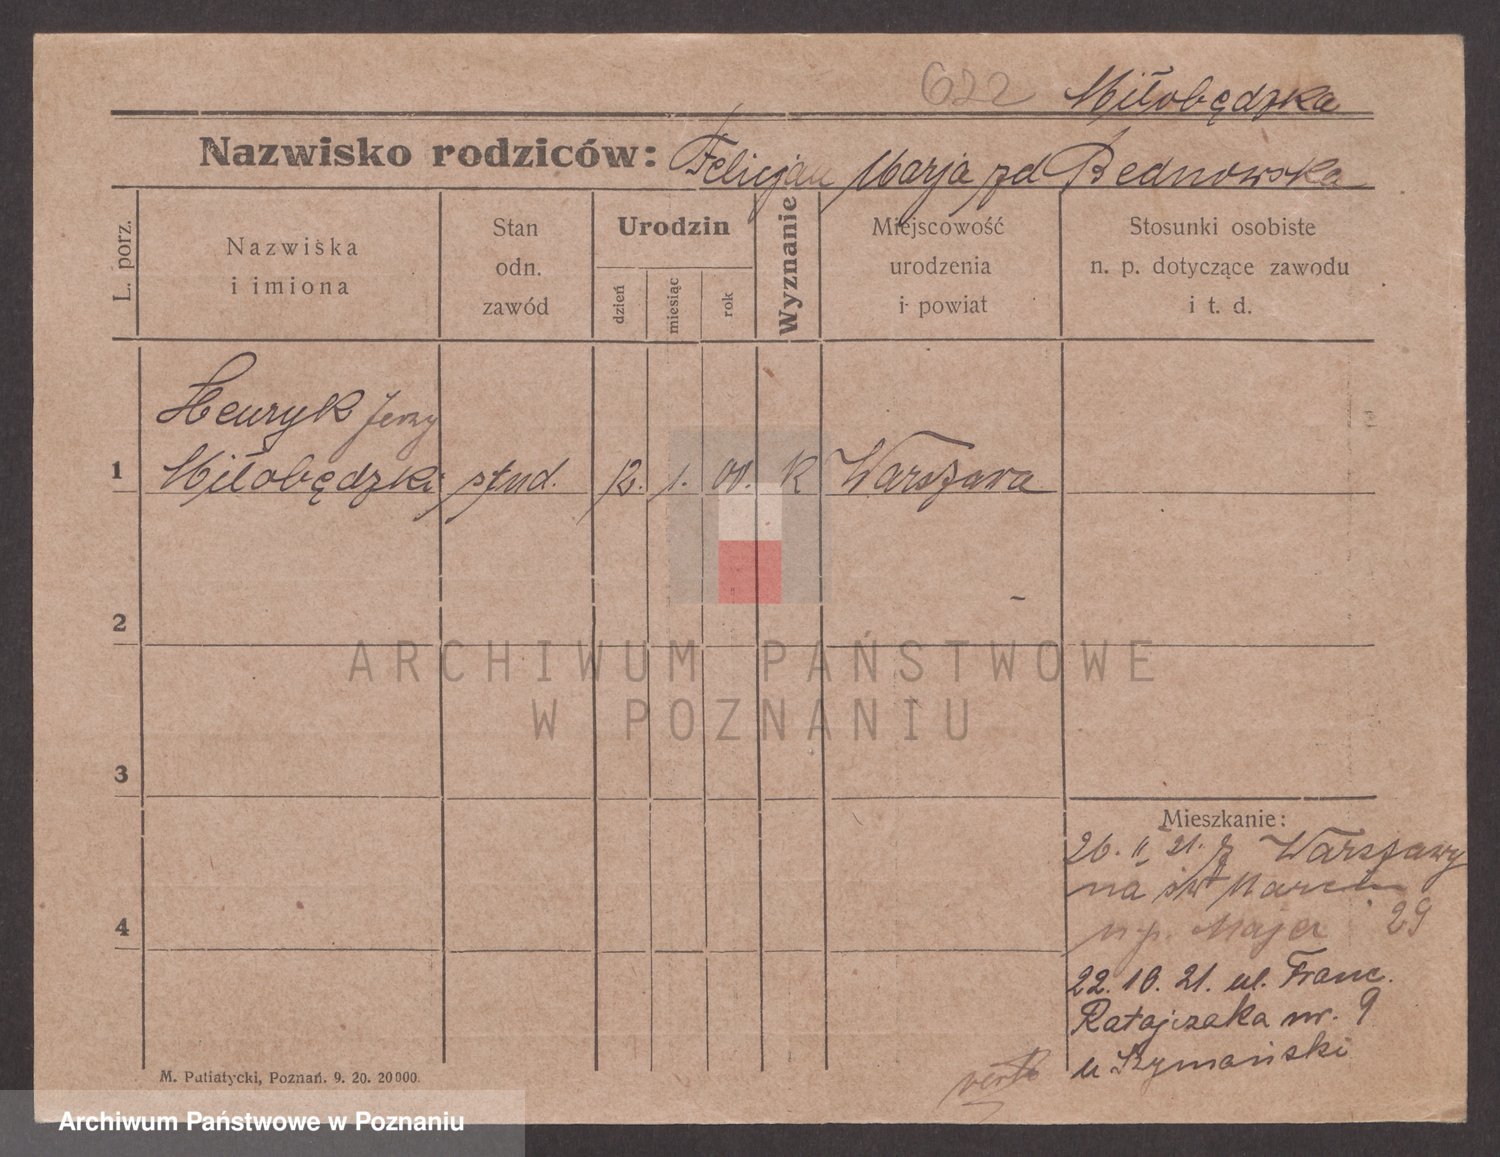 622 Miłobędzka
Nazwisko rodziców: Felicjan Marja zd Bednowska
L. porz.
Nazwiska
i imiona
Stan
odn.
zawód
Urodzin
dzień
miesiąc
rok
Wyznanie
Miejscowość
urodzenia
i powiat
Stosunki osobiste
n. p. dotyczące zawodu
i t. d.
Henryk Jerzy
1 Miłobędzki stud. 12. 1. 00. k Warszawa
2
ARCHIWUM PAŃSTWOWE
W POZNANIU
3
Mieszkanie:
26. II 21. z Warszawy
na św Marcin
4
u p. Majer 29
22. 10. 21. ul. Franc.
Ratajczaka nr. 9
u Szymański
verte
M. Putiatycki, Poznań. 9. 20. 20000.
Archiwum Państwowe w Poznaniu